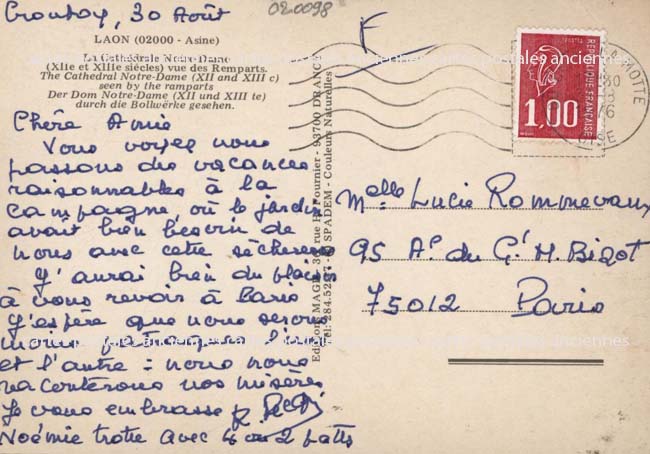 Crouttoy, 30 Août
020098
F
LAON (02000 - Aisne)
La Cathédrale Notre-Dame
(XIIe et XIIIe siècles) vue des Remparts.
The Cathedral Notre-Dame (XII and XIII c)
seen by the ramparts
Der Dom Notre-Dame (XII und XIII te)
durch die Bollwërke gesehen.
Chère Amie
Vous voyez nous
passons des vacances
raisonnables à la
campagne, où le jardin
avait bien besoin de
nous avec cette sécheresse
J'aurai bien du plaisir
à vous revoir à Paris
J'espère que nous serons
moins fatigués l'
et l'autre = nous nous
raconterons nos misères
Je vous embrasse
Noémie trotte avec 4 ou 2 patts
Editions MAGE - 36, rue H. Fournier - 93700 DRANCY
Tél: 284.52 SPADEM - Couleurs Naturelles
LAMOTTE
30
8
REPUBLIQUE FRANÇAISE
1,00
Melle Lucie Rommevaux
95 Av. du Gl M. Bizot
75012 Paris
cartes postales anciennes cartes postales anciennes